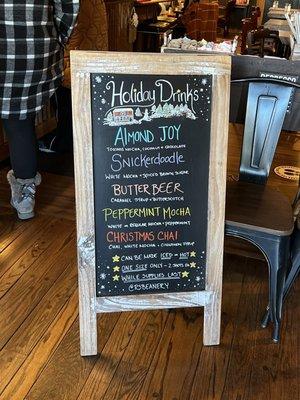 Holiday Drinks
ALMOND JOY
TOASTED MOCHA, COCONUT + CHOCOLATE
SNICKERDOODLE
WHITE MOCHA + SPICED BROWN SUGAR
BUTTERBEER
CARAMEL SYRUP + BUTTERSCOTCH
PEPPERMINT MOCHA
WHITE OR REGULAR MOCHA + PEPPERMINT
CHRISTMAS CHAI
CHAI, WHITE MOCHA + CINNAMON SYRUP
CAN BE MADE ICED OR HOT
ONE SIZE ONLY - 2 SHOTS
WHILE SUPPLIES LAST